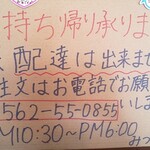 持ち帰り承りま
配達は出来ませ
注文はお電話でお願
562-55-0855
AM10:30~PM6:00